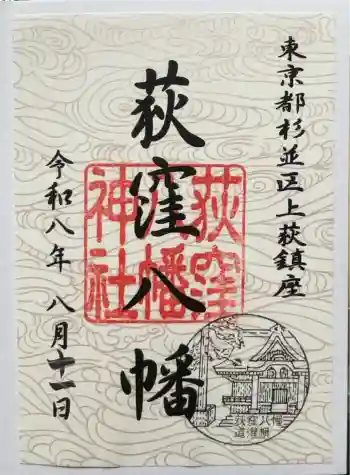 東京都杉並区上荻鎮座
荻窪八幡
荻窪八幡神社
令和八年 八月十一日